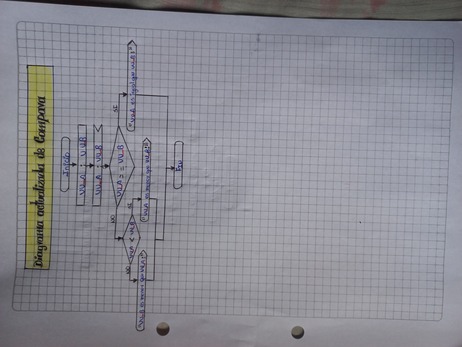 Diagrama actualizada de Compara
Inicio
VLA : VLB
VLA : VLB
NO
VLA = = VLB
SI
NO
VLA < VLB
SI
"VLA es igual que VLB!"
"VLB es menor que VLA!"
"VLA es menor que VLB!"
Fin